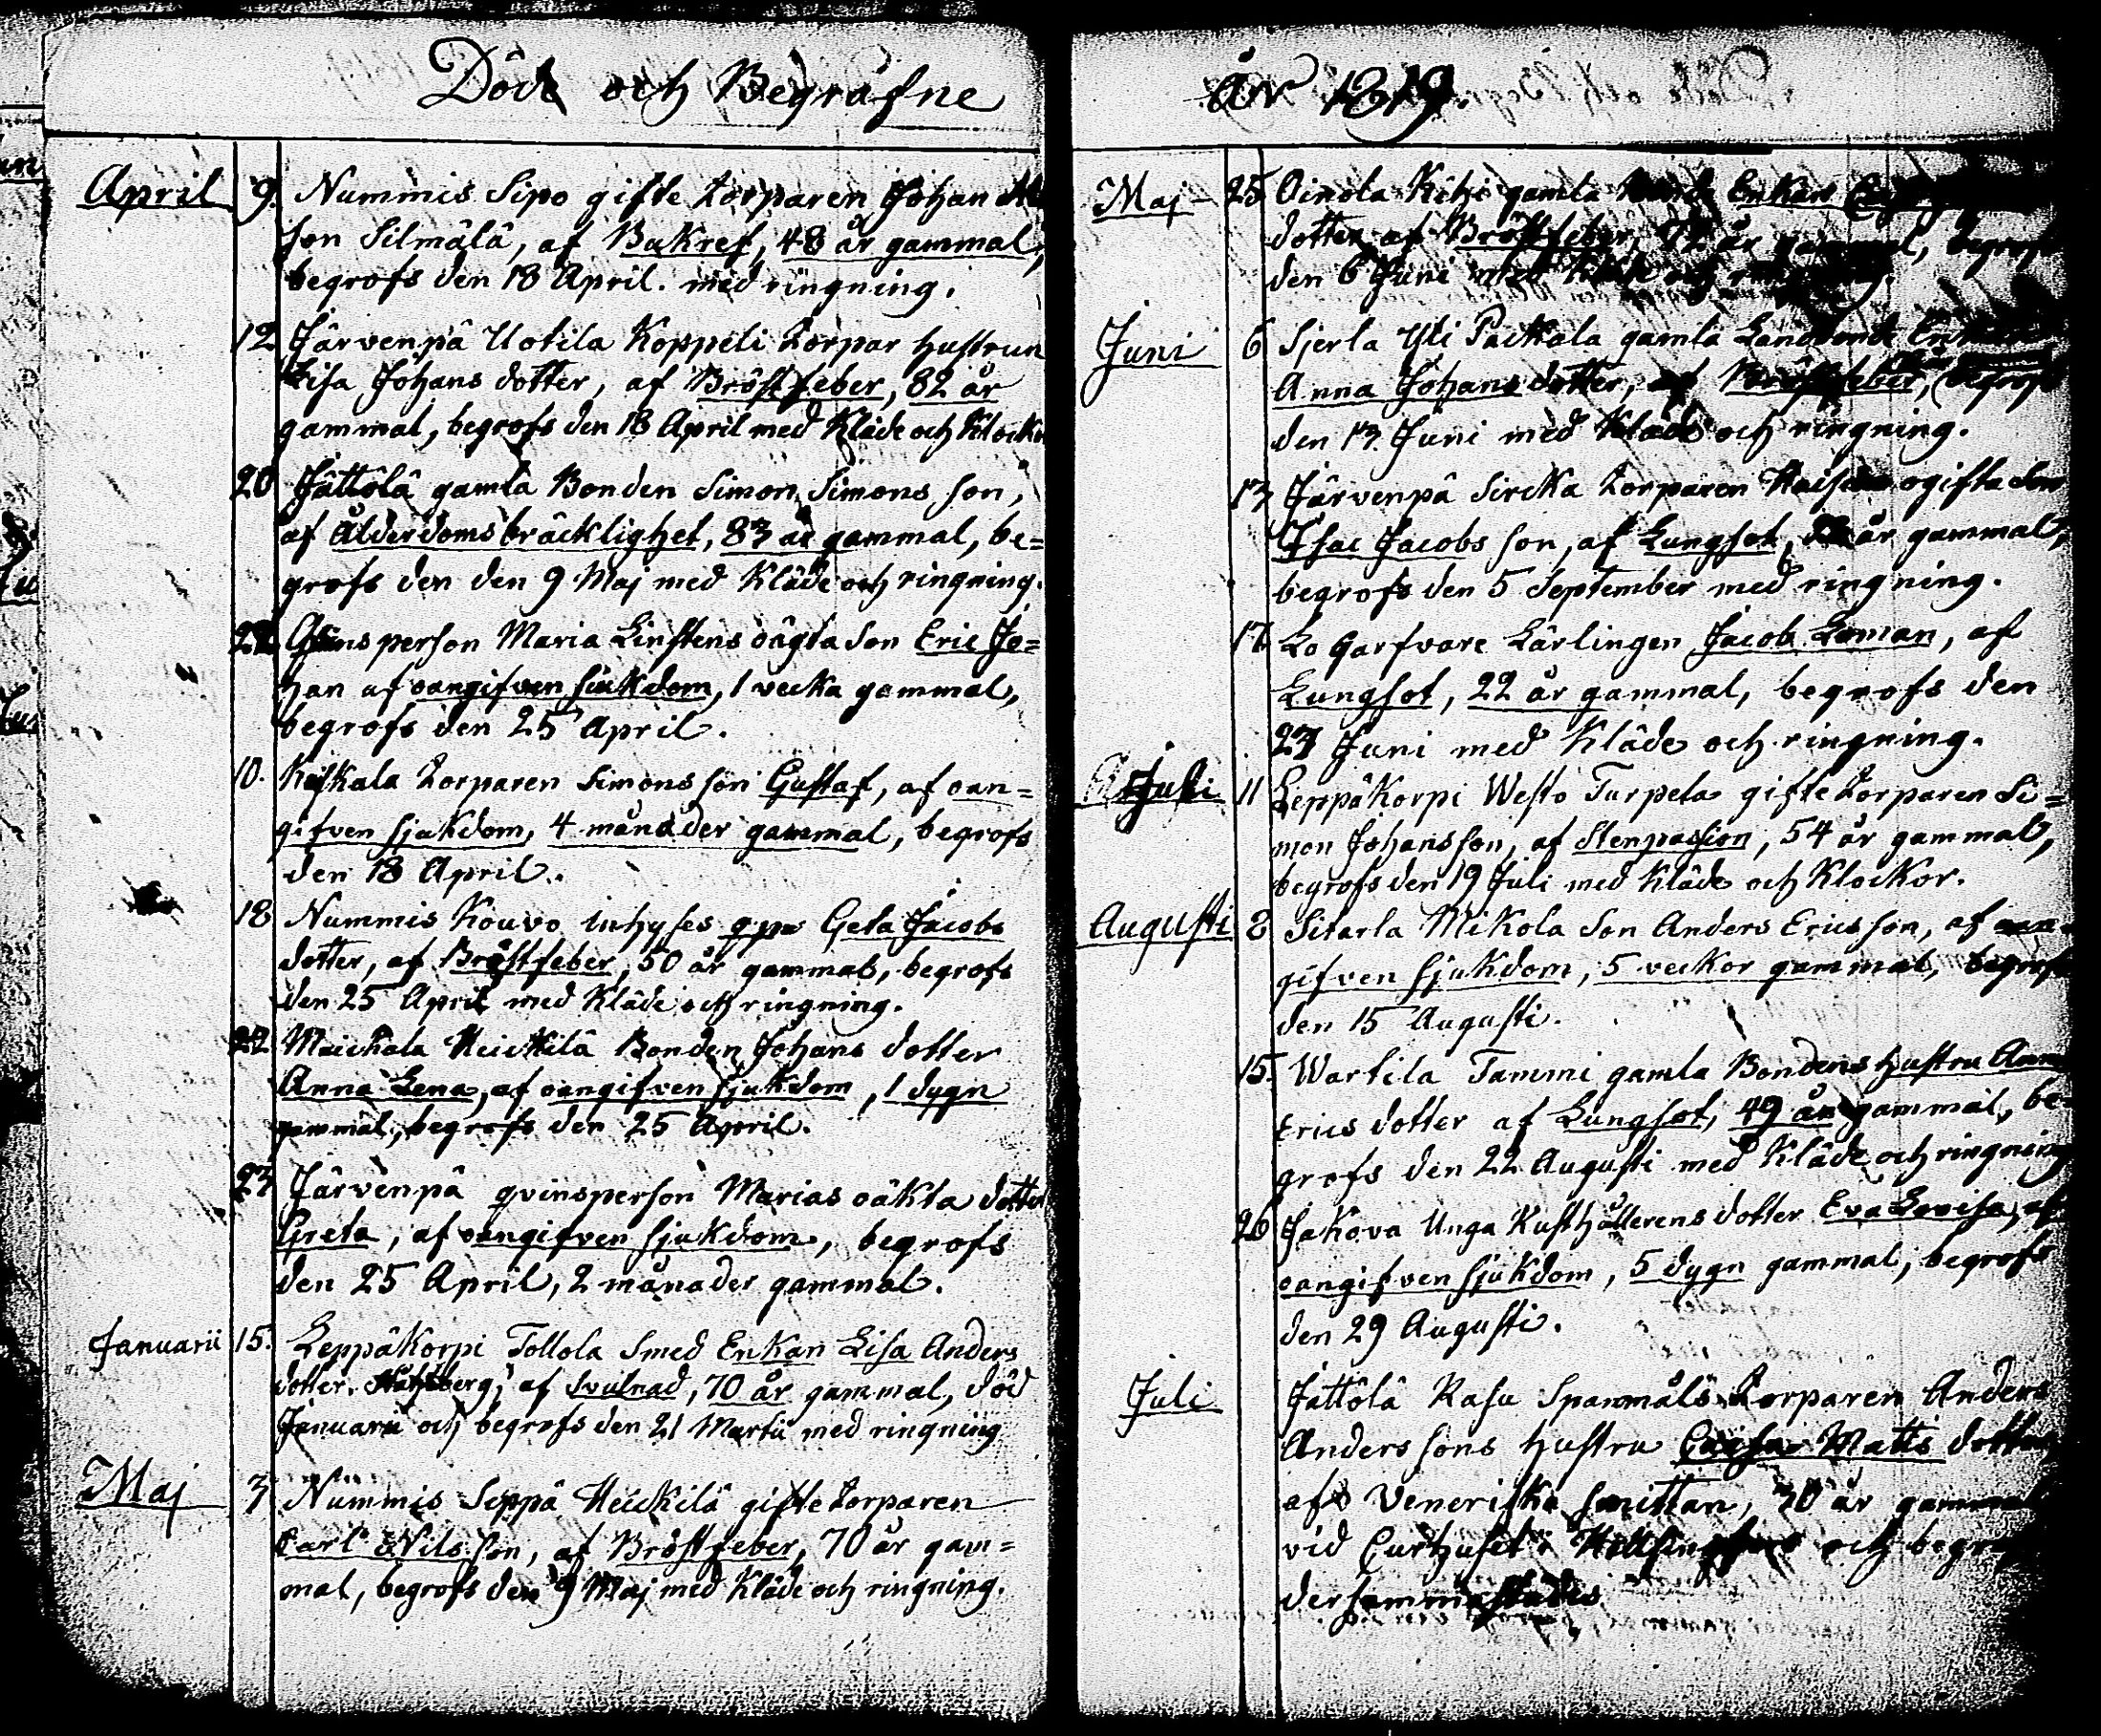 Död och Begrafne
år 1819.
April 9. Nummis Sipo gifte Torparen Johan
son Silmälä, af Bukref, 48 år gammal,
begrofs den 18 April. med ringning.
12 Järvenpä Uotila Koppeli Torpar hustrun
Lisa Johans dotter, af Bröstfeber, 82 år
gammal, begrofs den 18 April med Kläde och Klocko
20 Jättölä gamla Bonden Simon Simons son,
af Ålderdoms bräcklighet, 83 år gammal, be=
grofs den den 9 Maj med Kläde och ringning.
22 Qvinsperson Maria Linstens oägta son Eric Jo=
han af oangifven sjukdom, 1 vecka gammal,
begrofs den 25 April.
10. Torparen Simons son Gustaf, af oan=
gifven sjukdom, 4 månader gammal, begrofs
den 18 April.
18 Nummis Kouvo inhyses Geta Jacobs
dotter, af Bröstfeber, 50 år gammal, begrofs
den 25 April med Kläde och ringning.
22 Maickala Heickilä Bonden Johans dotter
Anna Lena, af oangifven sjukdom, 1 dygn
gammal, begrofs den 25 April.
23 Järvenpä qvinsperson Marias oäkta dotter
Greta, af oangifven sjukdom, begrofs
den 25 April, 2 månader gammal.
Januarii 15. Leppäkorpi Tollola Smed Enkan Lisa Anders
dotter af Svulnad, 70 år gammal, död
Januarii och begrofs den 21 Martii med ringning
Maj 3 Nummis Seppä Heickilä gifte Torparen
Carl Nils son, af Bröstfeber, 70 år gam=
mal, begrofs den 9 Maj med Kläde och ringning.
Maj 25 Oinola Kihi gamla Enkan
dotter af Bröstfeber, 72 år gammal, begrofs
den 6 Juni med Kläde och ringning.
Juni 6 Sjerla Yli Päckala gamla Landbonde
Anna Johans dotter, af Bröstfeber, begrofs
den 13 Juni med Kläde och ringning.
13 Järvenpä Sircka Torparen ogifta son
Isac Jacobs son, af Lungsot, år gammal,
begrofs den 5 September med ringning.
17 Lo Garfvare Lärlingen Jacob Loman, af
Lungsot, 22 år gammal, begrofs den
27 Juni med Kläde och ringning.
Juli 11 Leppäkorpi Westo Turpela gifte Torparen Si=
mon Johansson, af Stenpassion, 54 år gammal,
begrofs den 19 Juli med Kläde och Klockor.
Augusti 2 Sitarla Mikola Son Anders Ericsson, af oan=
gifven sjukdom, 5 veckor gammal, begrofs
den 15 Augusti.
15. Wartila Tammi gamla Bondens hustru Anna
Erics dotter af Lungsot, 49 år gammal, be=
grofs den 22 Augusti med Kläde och ringning
26 Jakova Unga Rusthållerens dotter Eva Lovisa, af
oangifven sjukdom, 5 dygn gammal, begrofs
den 29 Augusti.
Juli Jättölä Rasu Spanmåls Torparen Anders
Anders sons hustru Cajsa Matts dotter
af Veneriska smittan, 30 år gammal
vid Curhuset i Helsingfors och begrofs
dersammastädes